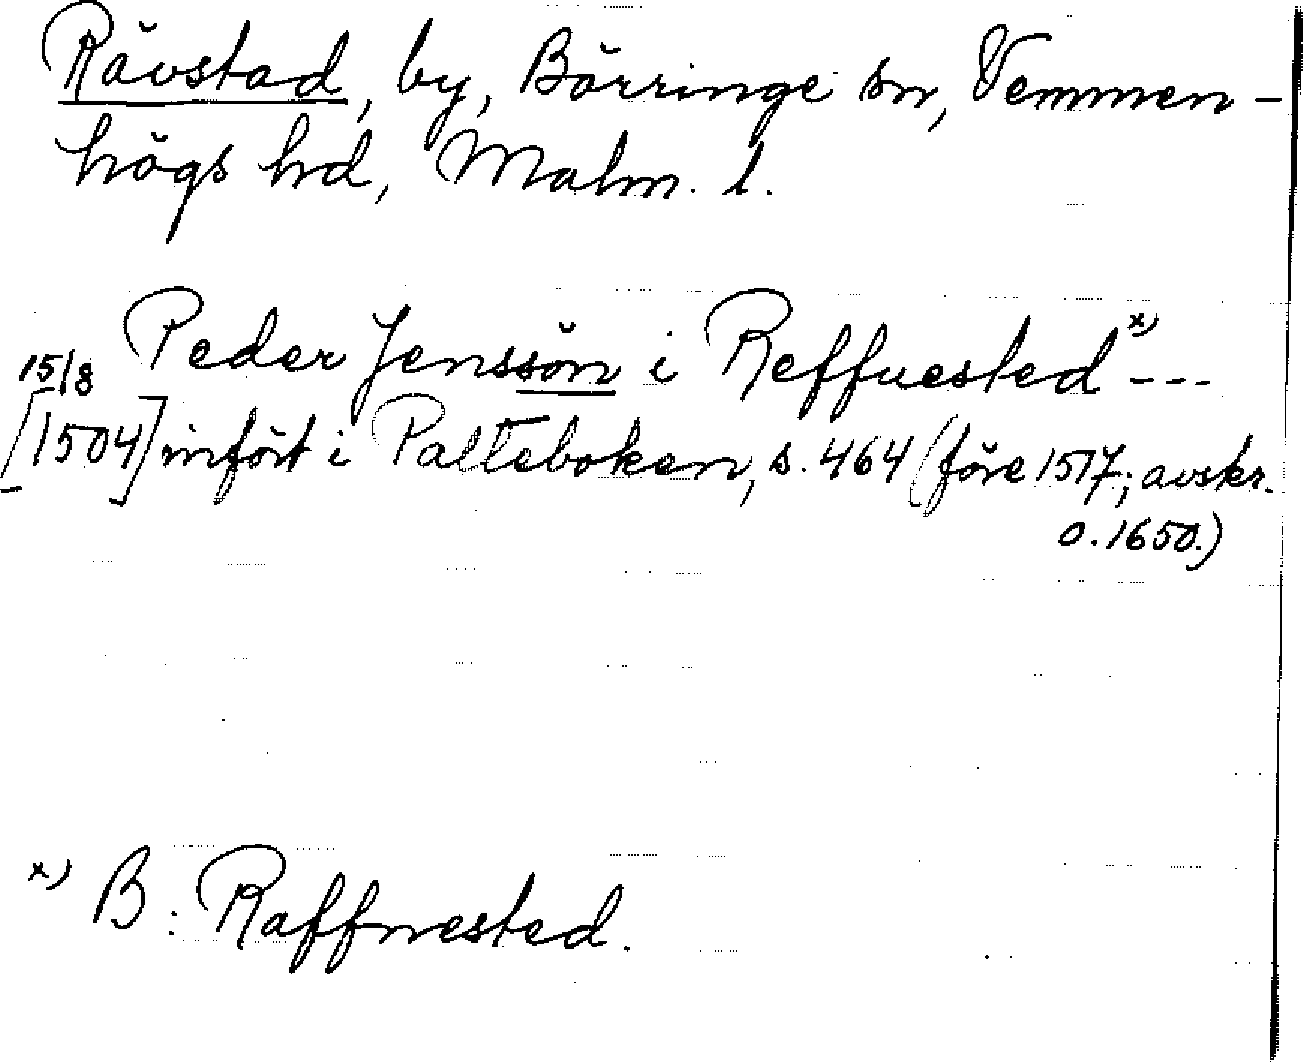 Rävstad, by, Börringe sn, Vemmen-
högs hd, Malm. l.
Peder Jenssön i Reffuested x) ---
15/8
[1504] infört i Palteboken, s. 464 (före 1517; avskr.
o. 1650.)
x) B: Raffnested.